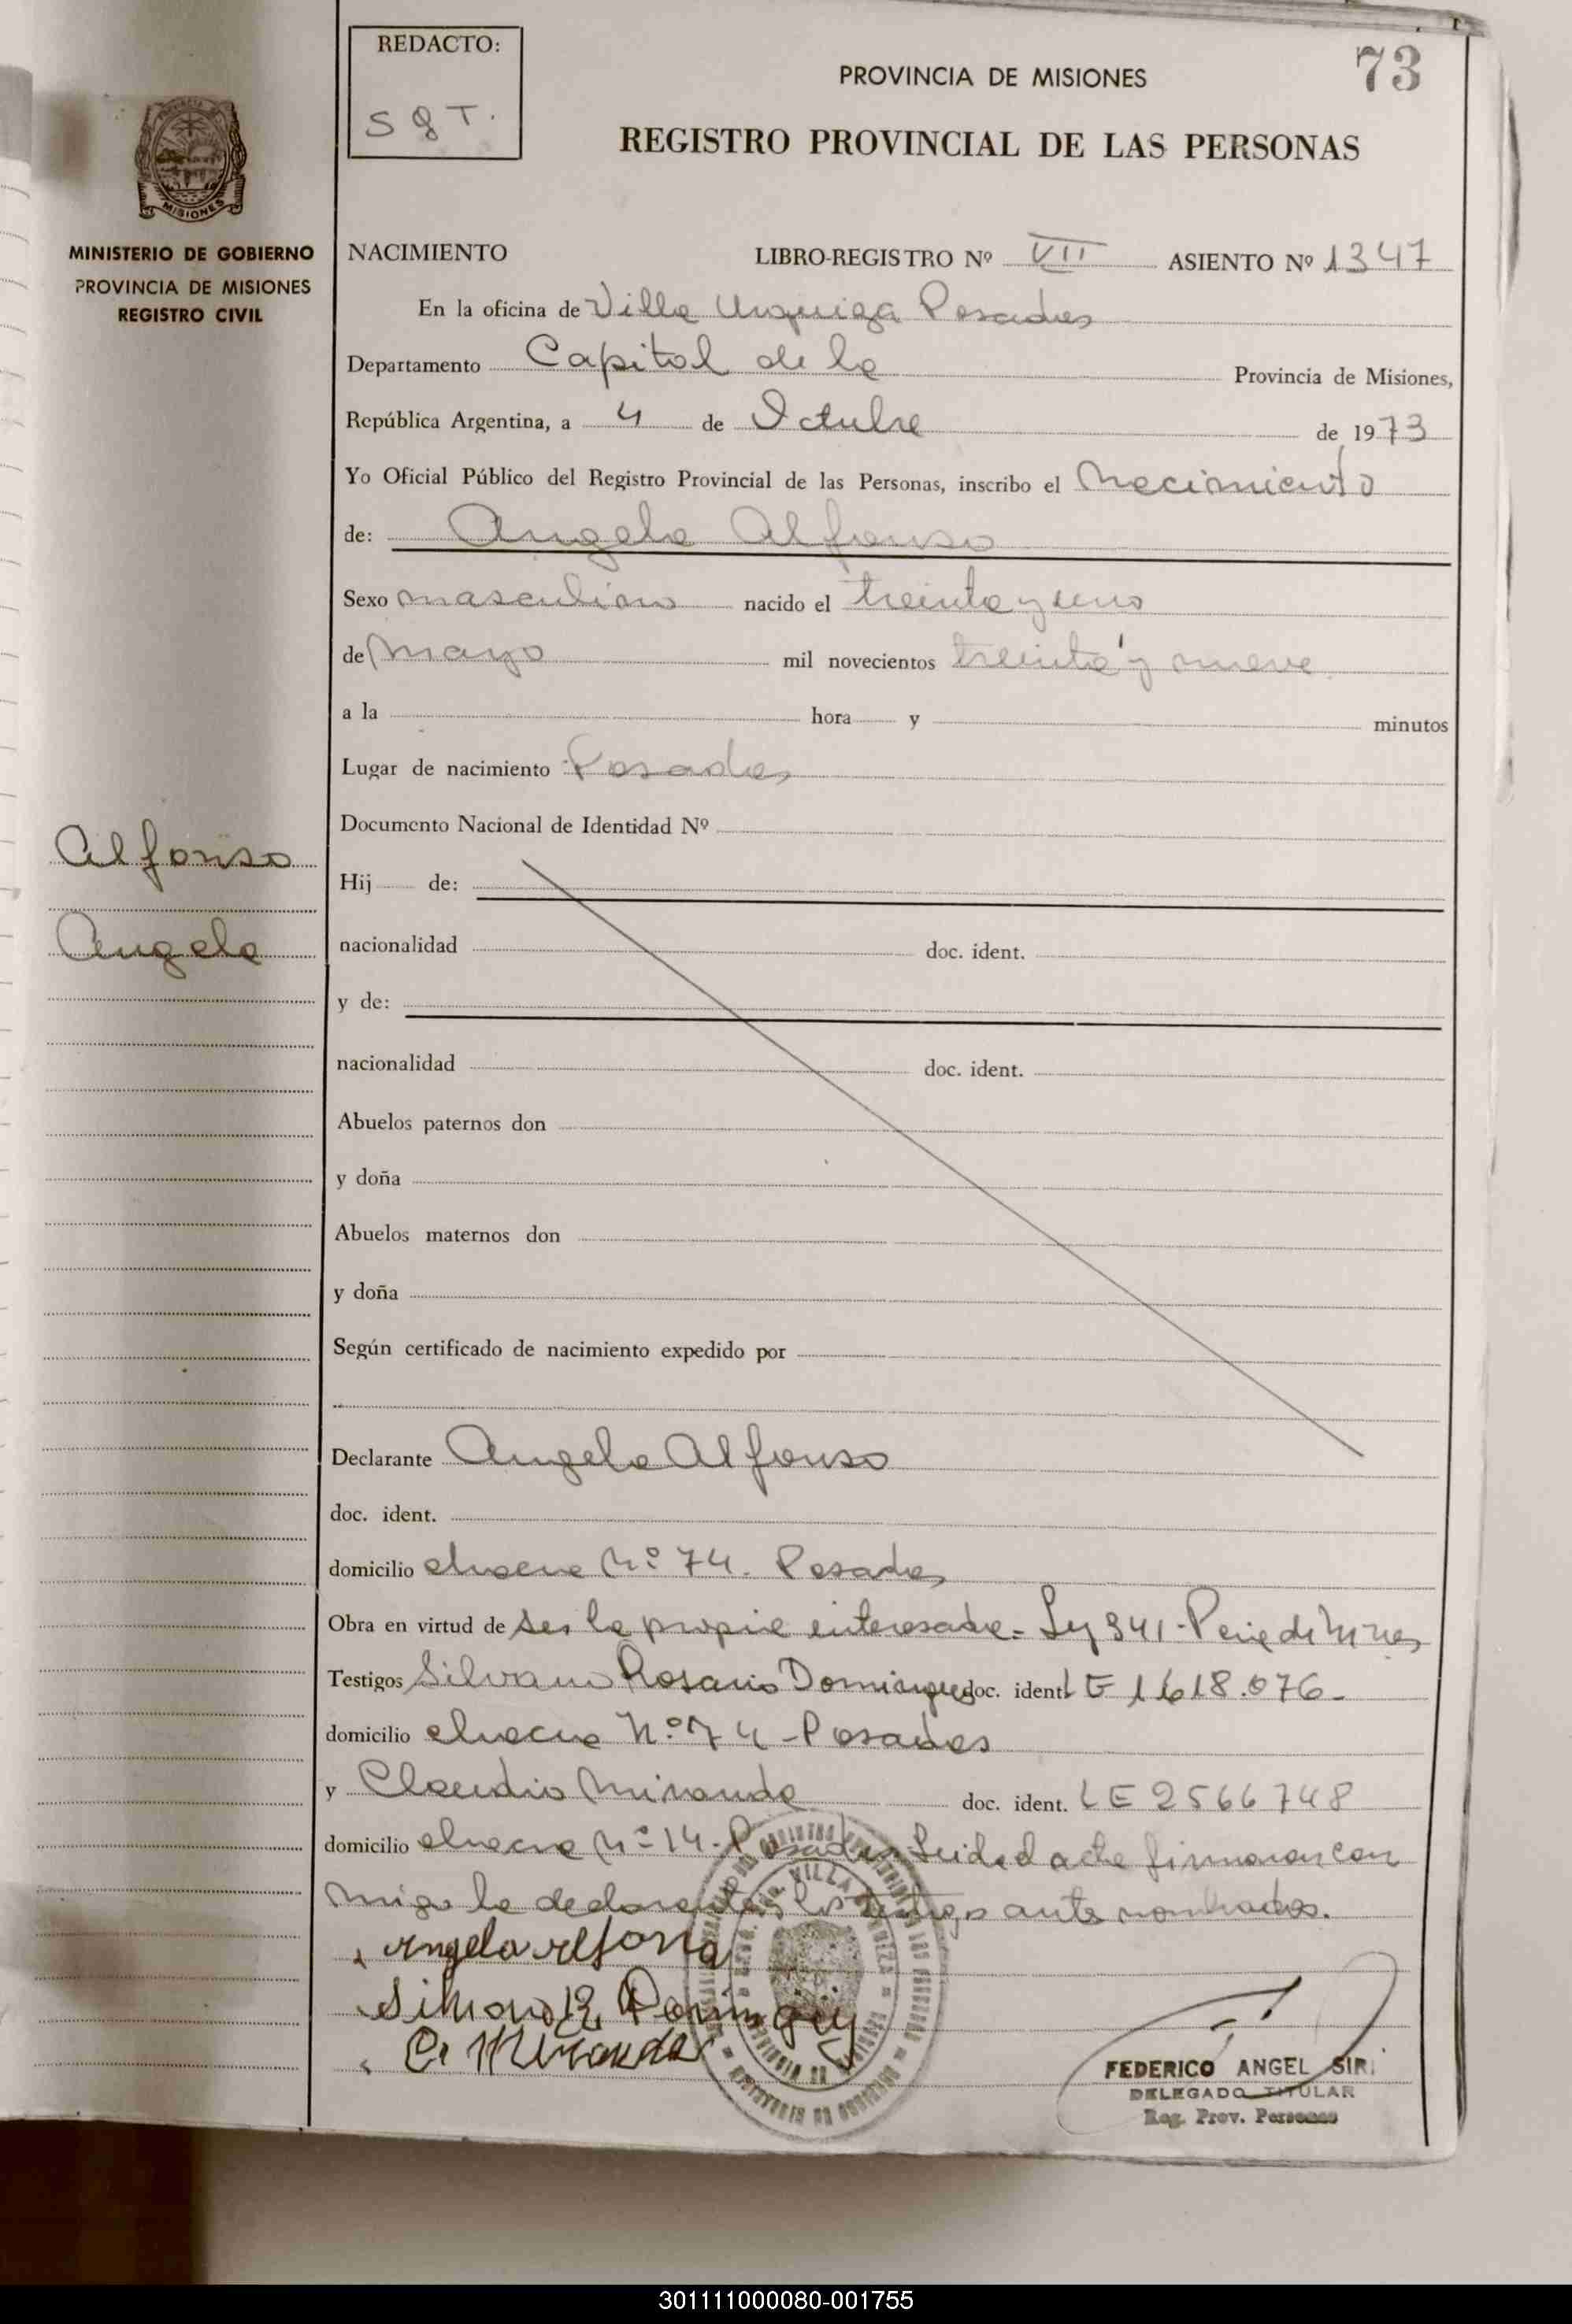 REDACTO:
S G T.
PROVINCIA DE MISIONES
73
REGISTRO PROVINCIAL DE LAS PERSONAS
MISIONES
MINISTERIO DE GOBIERNO
PROVINCIA DE MISIONES
REGISTRO CIVIL
NACIMIENTO LIBRO-REGISTRO Nº VII ASIENTO Nº 1347
En la oficina de Villa Urquiza Posadas
Departamento Capital de la Provincia de Misiones,
República Argentina, a 4 de Octubre de 1973
Yo Oficial Público del Registro Provincial de las Personas, inscribo el Nacimiento
de: Angela Alfonso
Sexo masculino nacido el treinta y uno
de Mayo mil novecientos treinta y nueve
a la hora y minutos
Lugar de nacimiento Posadas
Documento Nacional de Identidad Nº
Alfonso
Angela
Hij de:
nacionalidad doc. ident.
y de:
nacionalidad doc. ident.
Abuelos paternos don
y doña
Abuelos maternos don
y doña
Según certificado de nacimiento expedido por
Declarante Angela Alfonso
doc. ident.
domicilio chacra Nº 74. Posadas
Obra en virtud de ser la propia interesada - Ley 341 -
Testigos Silvano Rosario Dominguez doc. ident. LE 1618.076-
domicilio chacra Nº 74 - Posadas
y Claudio Miranda doc. ident. LE 2566748
domicilio chacra Nº 14. Posadas. Leida el acta firmaron con
migo la declarante y los testigos ante nombrados.
Angela Alfonso
Silvano R Dominguez
C. Miranda
FEDERICO ANGEL SIRI
DELEGADO TITULAR
Reg. Prov. Personas
301111000080-001755